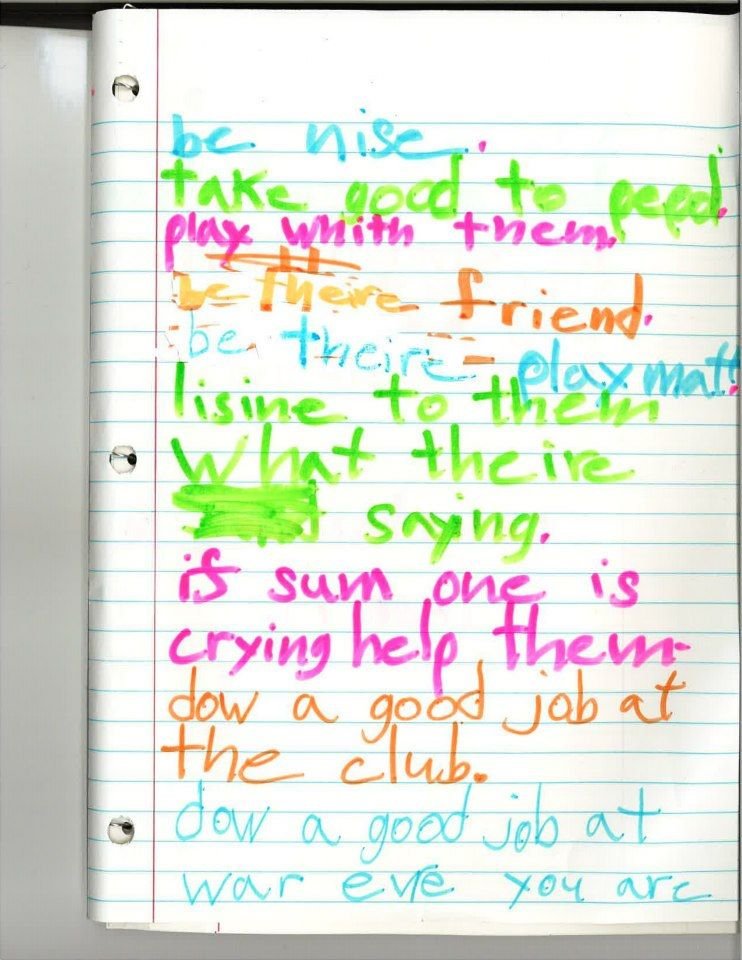 be nise.
take good to peed.
play whith them.
be theire friend.
be theire playmatt.
lisine to them
what theire
saying.
if sum one is
crying help them.
dow a good job at
the club.
dow a good job at
war eve you are